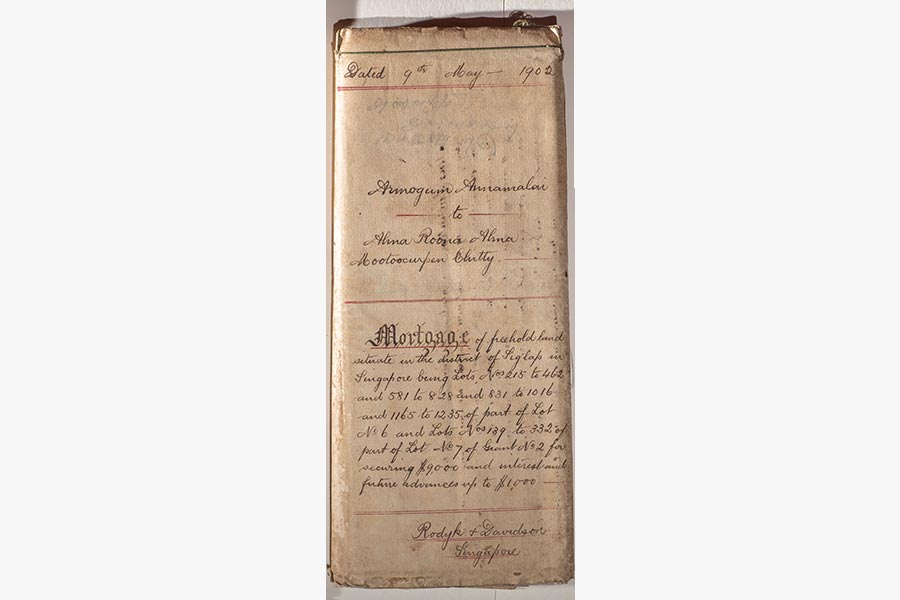 Dated 9th May — 1902
Armogum Annamalai
to
Ahna Roona Ahna
Mootoocurpen Chitty
Mortgage of freehold land
situate in the district of Siglap in
Singapore being Lots Nos 215 to 462
and 581 to 828 and 831 to 1016
and 1165 to 1235 of part of Lot
No 6 and Lots Nos 139 to 332 of
part of Lot No 7 of Grant No 2 for
securing $9,000 and interest and
future advances up to $1,000
Rodyk & Davidson
Singapore